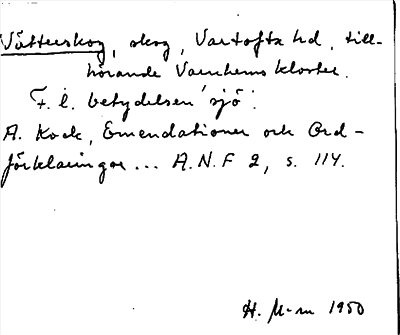 Vätterskog, skog, Vartofta hd, till-
hörande Varnhems kloster.
F. l. betydelsen 'sjö'.
A. Kock, Emendationer och Ord-
förklaringar ... A.N.F 2, s. 114.
H. M-m 1950